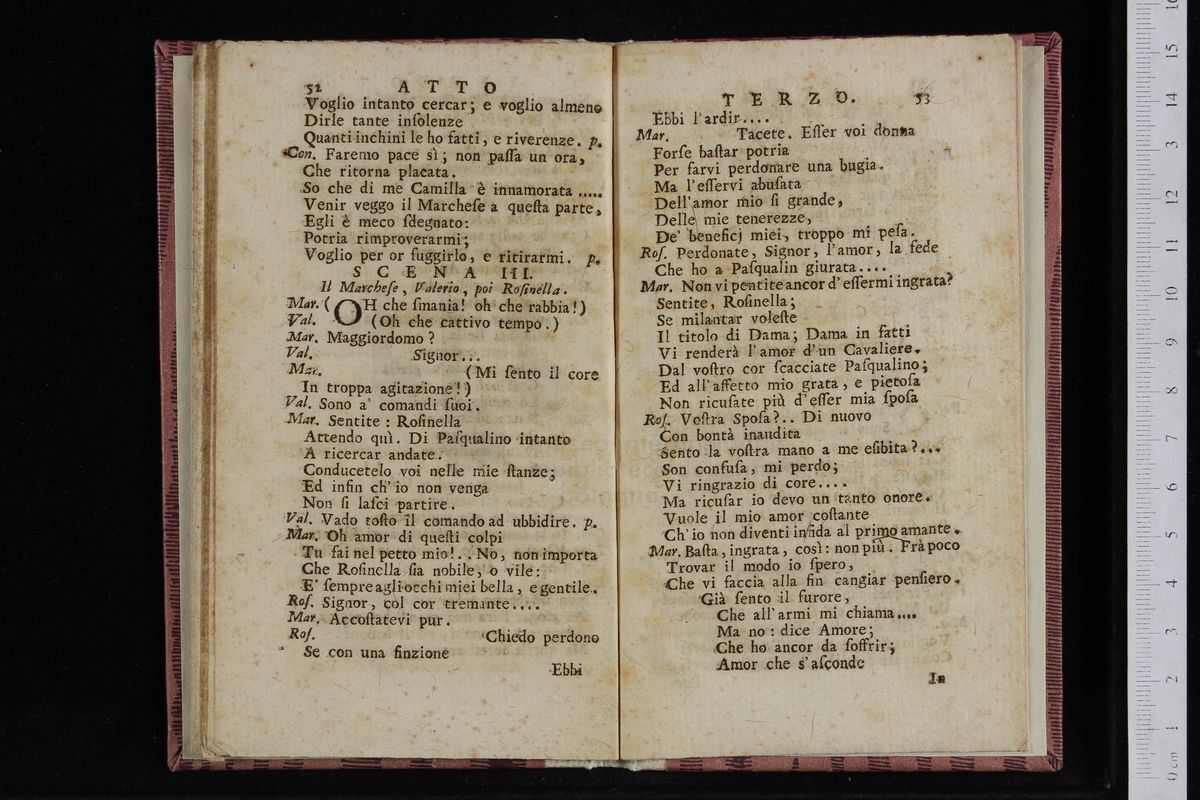 52 ATTO
Voglio intanto cercar; e voglio almeno
Dirle tante inſolenze
Quanti inchini le ho fatti, e riverenze. p.
Con. Faremo pace sì; non paſſa un ora,
Che ritorna placata.
So che di me Camilla è innamorata .....
Venir veggo il Marcheſe a queſta parte,
Egli è meco ſdegnato:
Potria rimproverarmi;
Voglio per or fuggirlo, e ritirarmi. p.
SCENA III.
Il Marcheſe, Valerio, poi Roſinella.
Mar. (OH che ſmania! oh che rabbia!)
Val. (Oh che cattivo tempo.)
Mar. Maggiordomo?
Val. Signor...
Mar. (Mi ſento il core
In troppa agitazione!)
Val. Sono a' comandi ſuoi.
Mar. Sentite: Roſinella
Attendo quì. Di Paſqualino intanto
A ricercar andate.
Conducetelo voi nelle mie ſtanze;
Ed infin ch'io non venga
Non ſi laſci partire.
Val. Vado toſto il comando ad ubbidire. p.
Mar. Oh amor di queſti colpi
Tu fai nel petto mio!.. No, non importa
Che Roſinella ſia nobile, o vile:
E' ſempre agli occhi miei bella, e gentile.
Roſ. Signor, col cor tremante....
Mar. Accoſtatevi pur.
Roſ. Chiedo perdono
Se con una finzione
Ebbi
TERZO. 53
Ebbi l'ardir....
Mar. Tacete. Eſſer voi donna
Forſe baſtar potria
Per farvi perdonare una bugia.
Ma l'eſſervi abuſata
Dell'amor mio ſi grande,
Delle mie tenerezze,
De' beneficj miei, troppo mi peſa.
Roſ. Perdonate, Signor, l'amor, la fede
Che ho a Paſqualin giurata....
Mar. Non vi pentite ancor d'eſſermi ingrata?
Sentite, Roſinella;
Se milantar voleſte
Il titolo di Dama; Dama in fatti
Vi renderà l'amor d'un Cavaliere.
Dal voſtro cor ſcacciate Paſqualino;
Ed all'affetto mio grata, e pietoſa
Non ricuſate più d'eſſer mia ſpoſa
Roſ. Voſtra Spoſa?.. Di nuovo
Con bontà inaudita
Sento la voſtra mano a me eſibita?...
Son confuſa, mi perdo;
Vi ringrazio di core....
Ma ricuſar io devo un tanto onore.
Vuole il mio amor coſtante
Ch'io non diventi infida al primo amante.
Mar. Baſta, ingrata, così: non più. Frà poco
Trovar il modo io ſpero,
Che vi faccia alla fin cangiar penſiero.
Già ſento il furore,
Che all'armi mi chiama....
Ma no: dice Amore;
Che ho ancor da ſoffrir;
Amor che s'aſconde
In
0 cm 1 2 3 4 5 6 7 8 9 10 11 12 13 14 15 16